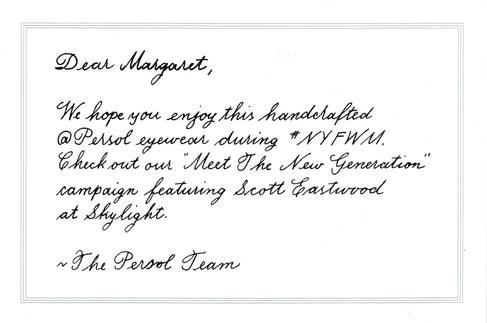 Dear Margaret,
We hope you enjoy this handcrafted
@Persol eyewear during #NYFWM.
Check out our "Meet The New Generation"
campaign featuring Scott Eastwood
at Skylight.
~The Persol Team